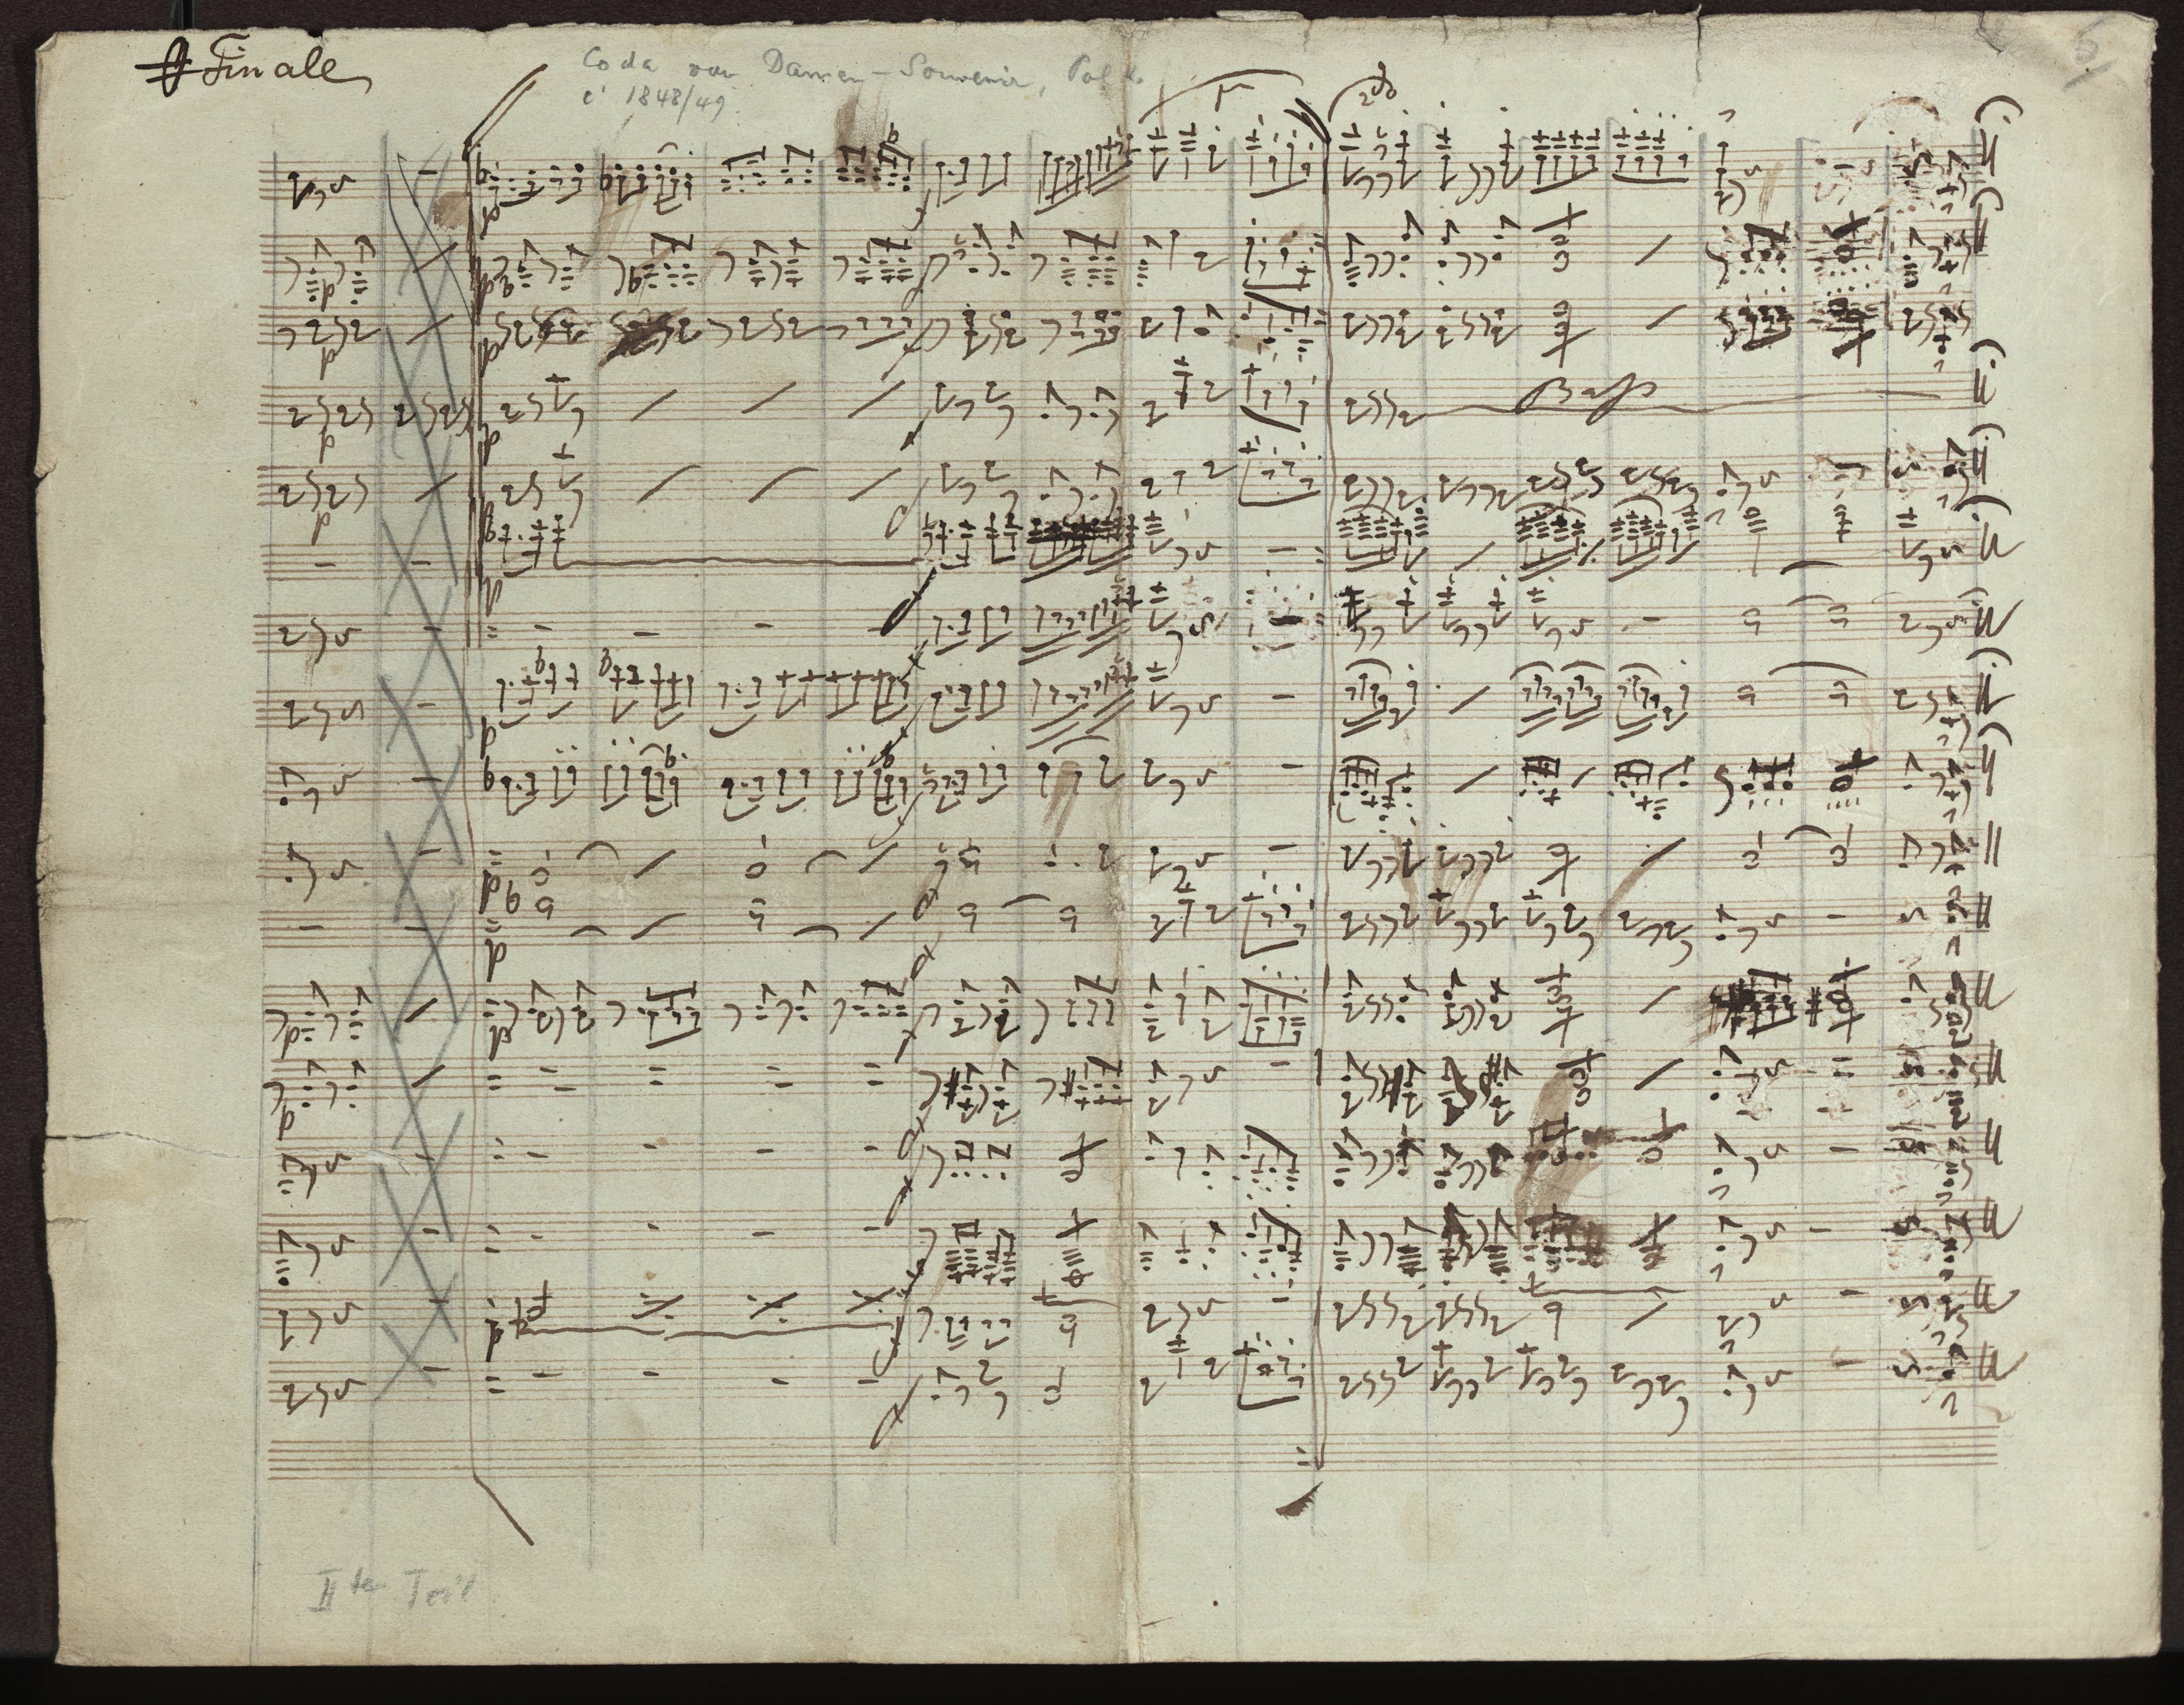 Finale
Coda von Damen-Souvenir, Polka
c 1848/49
5
1
2do
Bass
IIter Teil